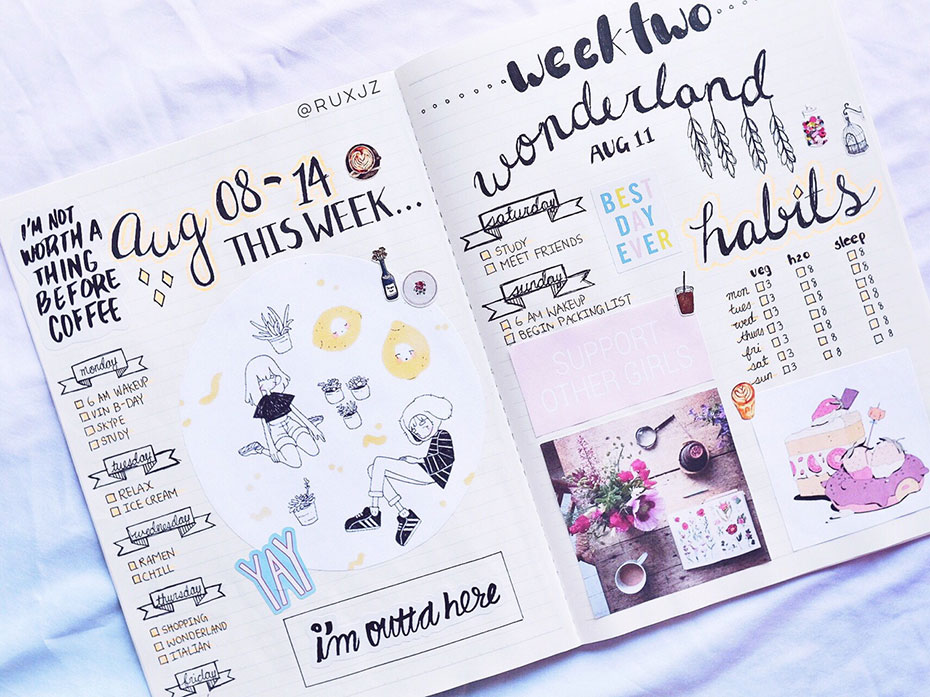 @RUXJZ
I'M NOT
WORTH A
THING
BEFORE
COFFEE
Aug 08-14
THIS WEEK...
monday
6 AM WAKEUP
VIN B-DAY
SKYPE
STUDY
tuesday
RELAX
ICE CREAM
wednesday
RAMEN
CHILL
thursday
SHOPPING
WONDERLAND
ITALIAN
friday
YAY
i'm outta here
week two
wonderland
AUG 11
saturday
STUDY
MEET FRIENDS
sunday
6 AM WAKEUP
BEGIN PACKING LIST
BEST
DAY
EVER
SUPPORT
OTHER GIRLS
habits
veg h2o sleep
mon 3 8 8
tues 3 8 8
wed 3 8 8
thurs 3 8 8
fri 3 8 8
sat 3 8
sun 3